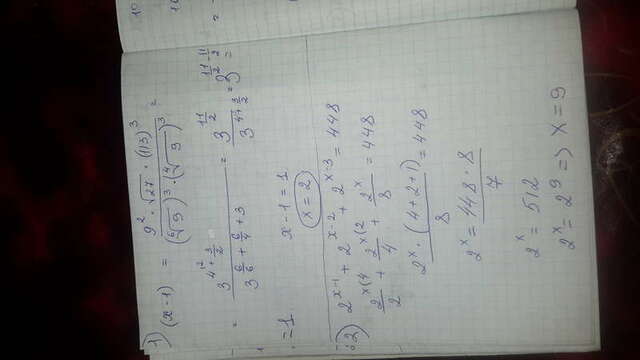 1) (x-1) = 9² · √27 · (1/3)³ / (⁶√9)³ · (⁴√9)³ =
= 3^(4+3/2) / 3^(6/6+6/4+3) = 3^(11/2) / 3^(4+3/2) = 3^(11/2-11/2) =
= 1   x-1=1
x=2
2) 2^(x-1) + 2^(x-2) + 2^(x-3) = 448
2^x(4 / 2 + 2^x(2 / 4 + 2^x / 8 = 448
2^x · (4+2+1) / 8 = 448
2^x = 448 · 8 / 7
2^x = 512
2^x = 2^9 => x=9